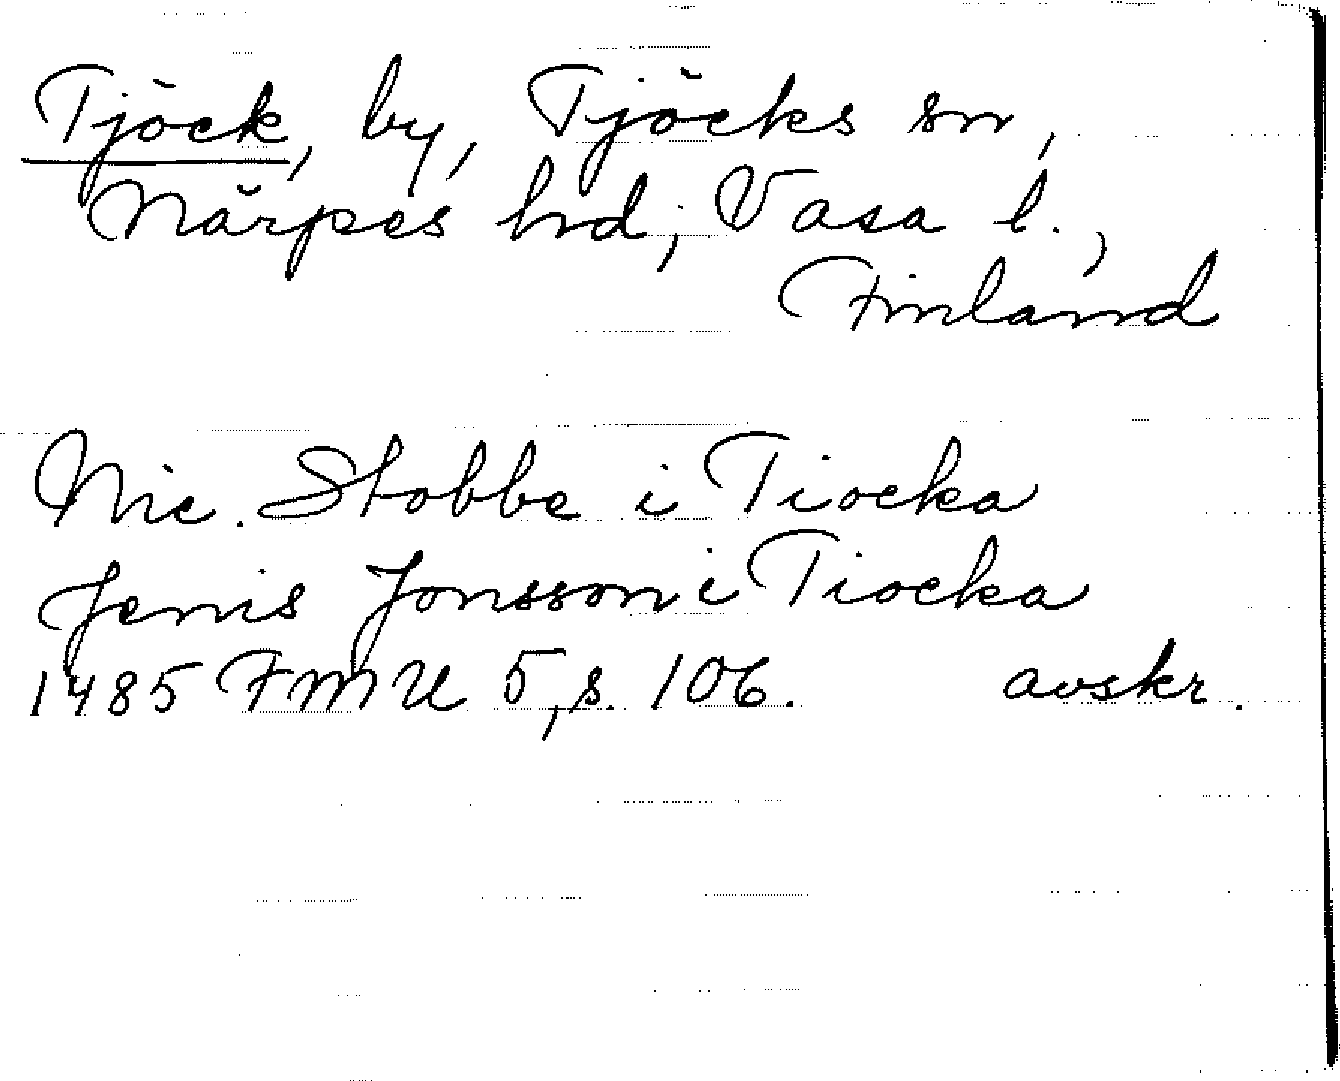 Tjöck, by, Tjöcks sn,
Närpes hd, Vasa l.,
Finland
Nic. Stobbe i Tiocka
Jenis Jonsson i Tiocka
1485 FMU 5, s. 106. avskr.